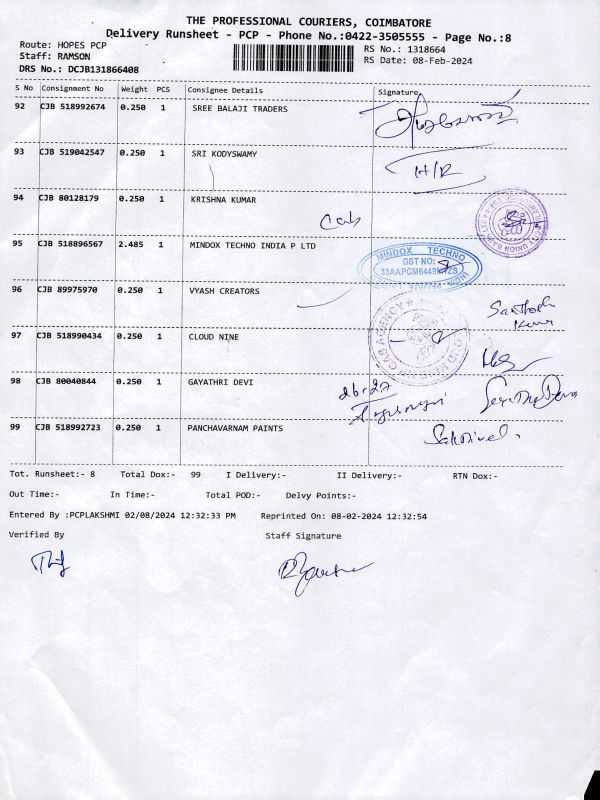 THE PROFESSIONAL COURIERS, COIMBATORE
Delivery Runsheet - PCP - Phone No.:0422-3505555 - Page No.:8
Route: HOPES PCP RS No.: 1318664
Staff: RAMSON RS Date: 08-Feb-2024
DRS No.: DCJB131866408
S No Consignment No Weight PCS Consignee Details Signature
92 CJB 518992674 0.250 1 SREE BALAJI TRADERS
93 CJB 519042547 0.250 1 SRI KODYSWAMY
H/R
94 CJB 80128179 0.250 1 KRISHNA KUMAR
95 CJB 518896567 2.485 1 MINDOX TECHNO INDIA P LTD
MINDOX TECHNO
GST NO:
96 CJB 89975970 0.250 1 VYASH CREATORS
Santhosh
Kumar
97 CJB 518990434 0.250 1 CLOUD NINE
GAS AGENCY
98 CJB 80040844 0.250 1 GAYATHRI DEVI
99 CJB 518992723 0.250 1 PANCHAVARNAM PAINTS
Sakthivel.
Tot. Runsheet:- 8 Total Dox:- 99 I Delivery:- II Delivery:- RTN Dox:-
Out Time:- In Time:- Total POD:- Delvy Points:-
Entered By :PCPLAKSHMI 02/08/2024 12:32:33 PM Reprinted On: 08-02-2024 12:32:54
Verified By Staff Signature